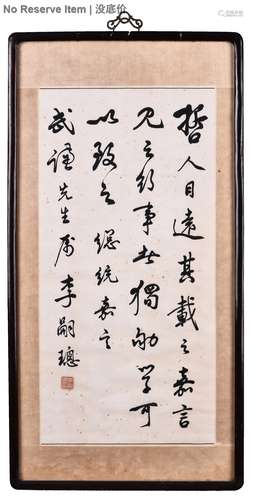 No Reserve Item | 没底价
哲人日遠其載之嘉言
見之行事者獨勤學可
以致之 總統嘉言
武謹先生屬 李嗣璁